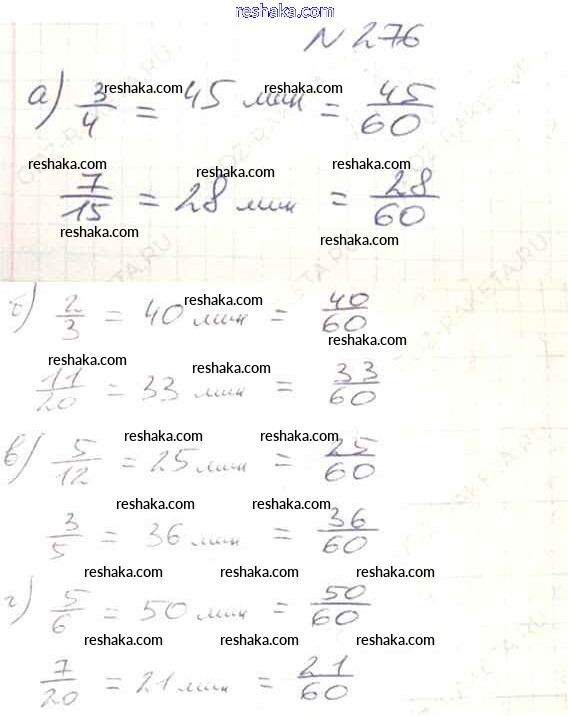 reshaka.com
N 276
reshaka.com reshaka.com
а) 3/4 = 45 мин = 45/60
reshaka.com reshaka.com reshaka.com
7/15 = 28 мин = 28/60
reshaka.com reshaka.com
reshaka.com
б) 2/3 = 40 мин = 40/60
reshaka.com
reshaka.com reshaka.com
11/20 = 33 мин = 33/60
reshaka.com reshaka.com
в) 5/12 = 25 мин = 25/60
reshaka.com reshaka.com
3/5 = 36 мин = 36/60
reshaka.com reshaka.com reshaka.com
г) 5/6 = 50 мин = 50/60
reshaka.com reshaka.com reshaka.com
7/20 = 21 мин = 21/60